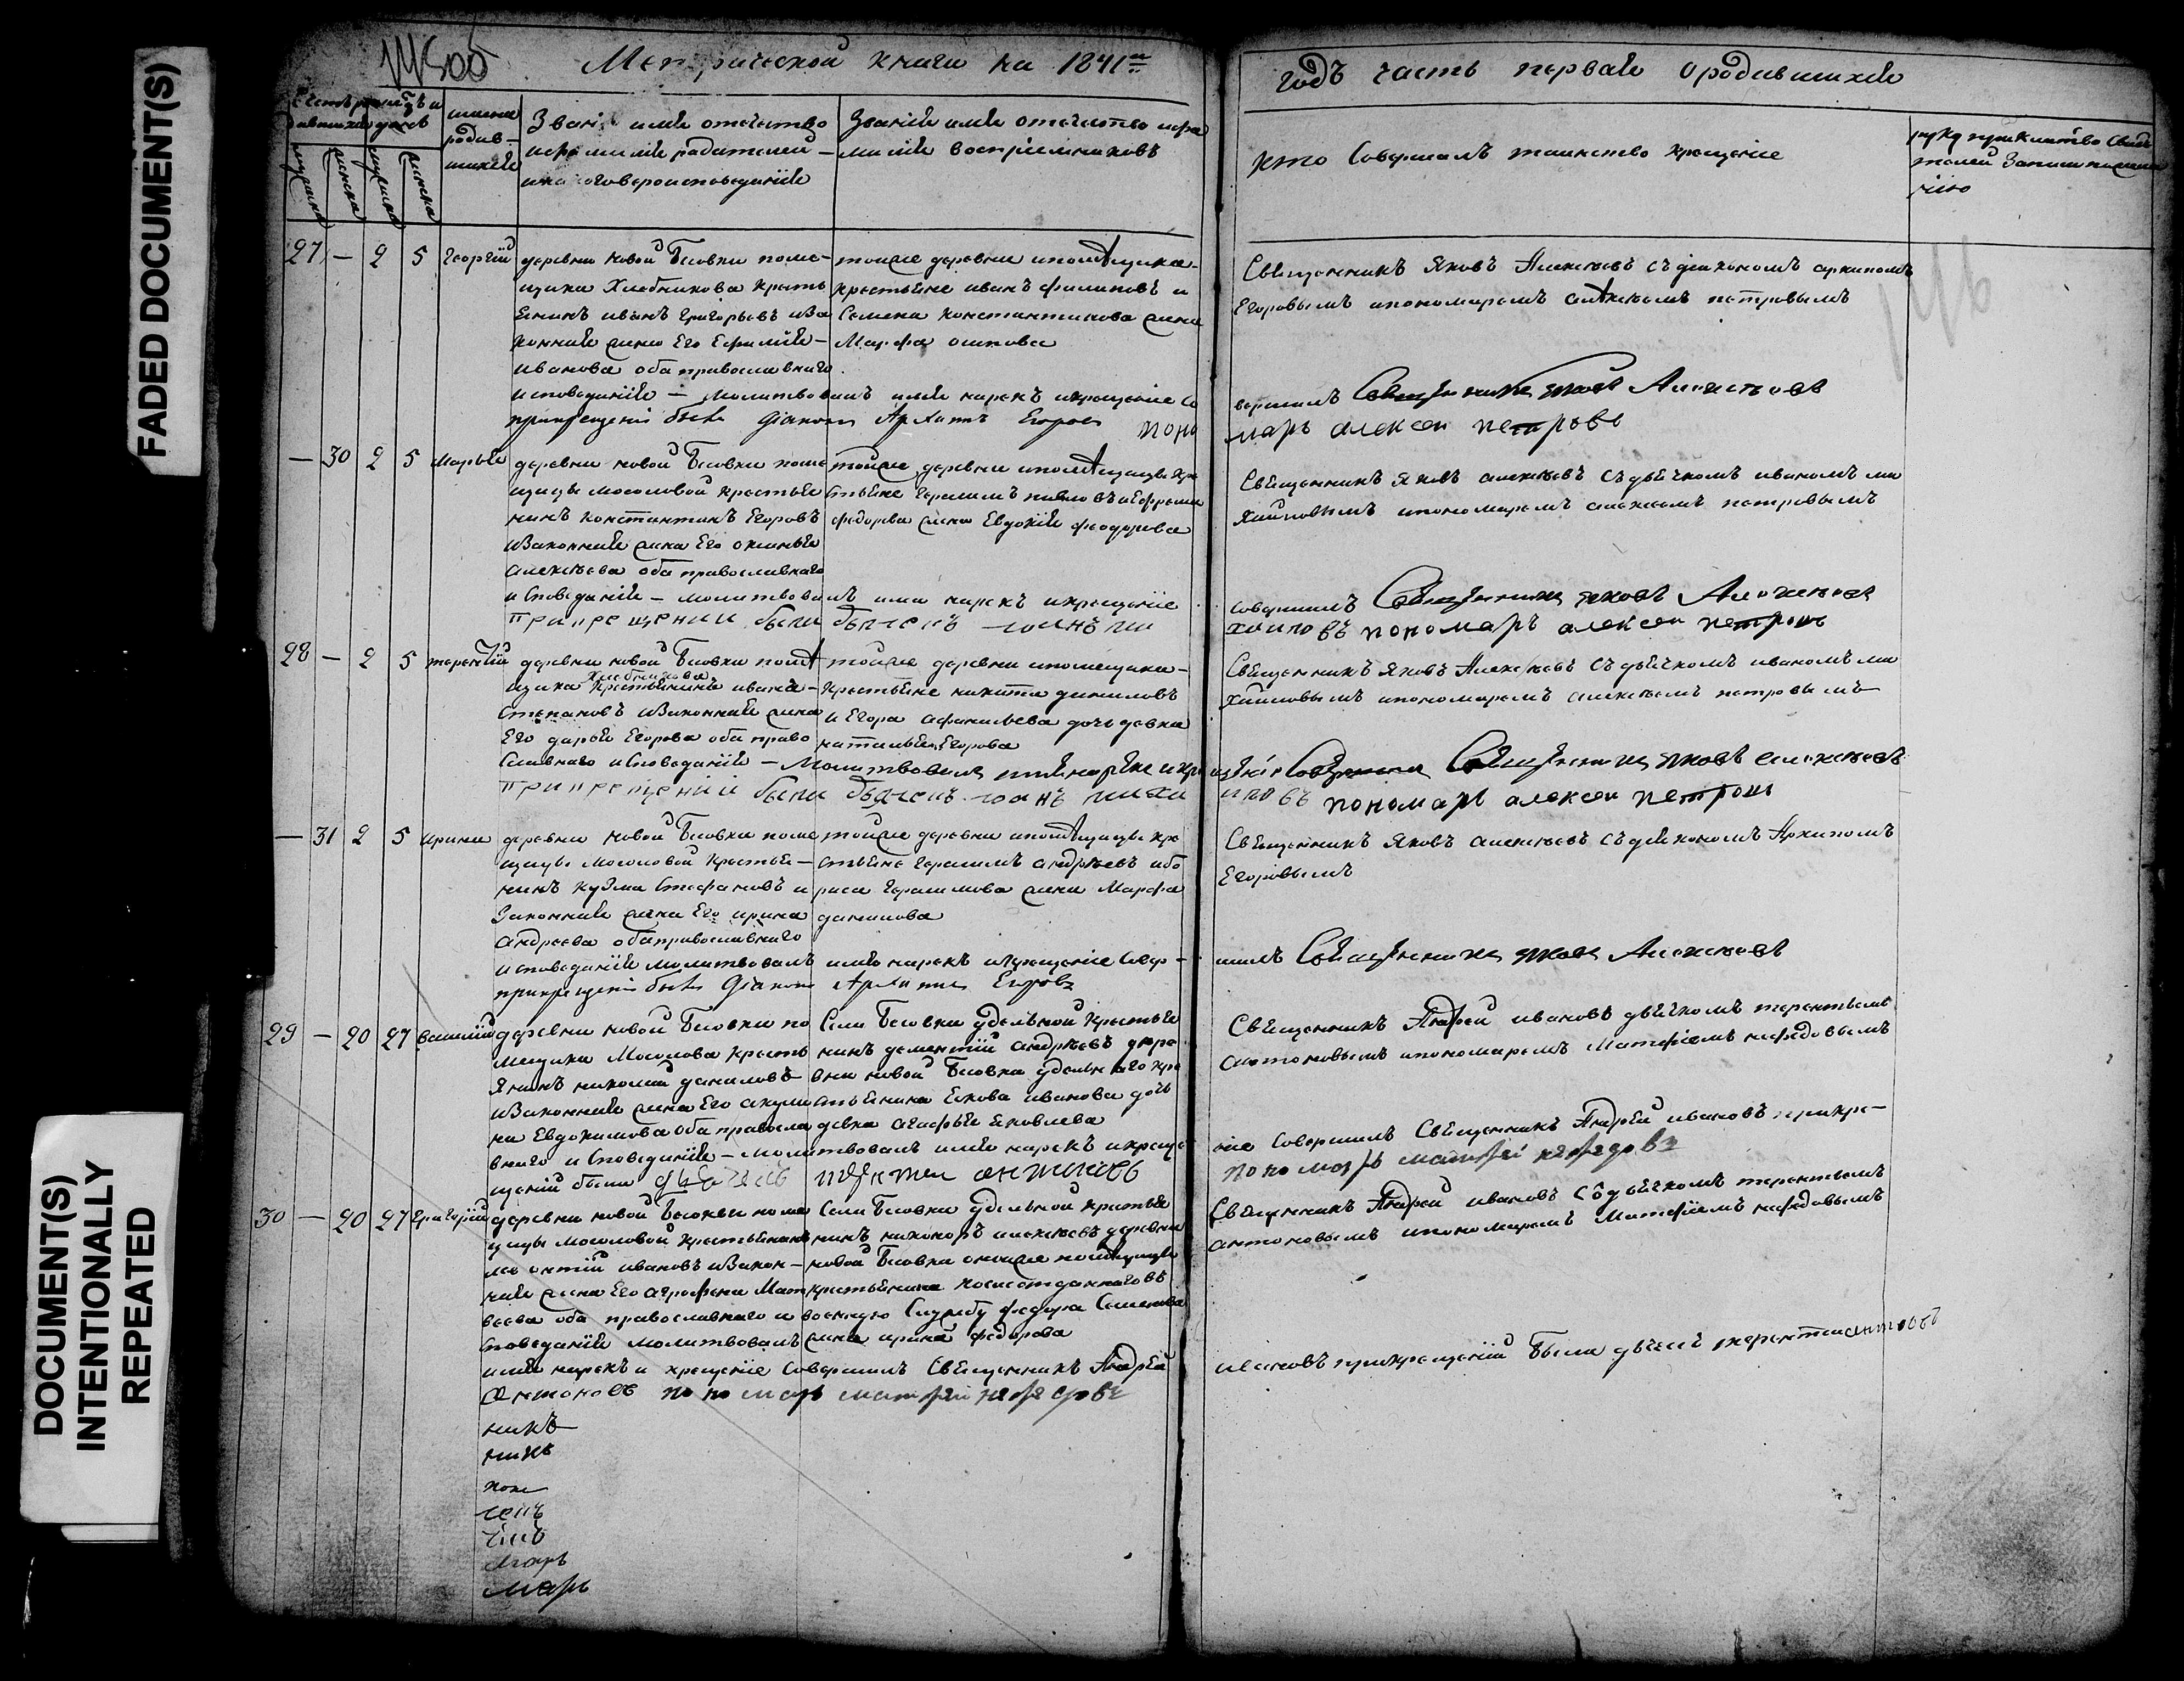 FADED DOCUMENT(S)
DOCUMENT(S)
INTENTIONALLY
REPEATED
Метрической книги на 1841й
годъ часть первая о родившихся
имена
родив-
шихся
Званіе имя отчество
и фамилія родителей
и какого вероисповеданія
Званіе имя отчество и фа
милія воспріемниковъ
кто совершалъ таинство крещеніе
27 — 2 5 Георгій
деревни новой Бесовки поме-
щика Хлебникова кресть
янинъ иванъ Григорьевъ и за
конная жена Его
иванова оба православнаго
исповеданія — молитвовалъ имя нарекъ и крещеніе со
при крещеніи былъ діаконъ Архипъ Егоровъ поно
той же деревни и помещика
крестьяне иванъ филиповъ и
Семена константинова жена
Марфа осипова
Священникъ Яковъ Алексеевъ съ діакономъ архипомъ
Егоровымъ и пономаремъ алексеемъ петровымъ
вершилъ Священникъ яковъ Алексеевъ
марь алексеи петровъ
— 30 2 5 Марья
деревни новой Бесовки поме
щицы мосоловой крестья
нинъ константинъ Егоровъ
и законная жена Его
алексеева оба православнаго
исповеданія — молитвовалъ имя нарекъ и крещеніе
при крещении были дьячекъ иоанъ ми
той же деревни и помещицы кре
стьяне герасимъ
федорова жена Евдокія феодорова
Священникъ Яковъ алексеевъ съ дьячкомъ иваномъ ми
хайловымъ и пономаремъ алексеемъ петровымъ
совершилъ Священникъ яковъ Алексеевъ
хаиловъ пономарь алексеи петровъ
28 — 2 5 терентій
деревни новой Бесовки поме
Хлебникова
щика крестьянинъ иванъ
Степановъ и законная жена
Его дарья Егорова оба право
славнаго исповеданія — молитвовалъ имя нарекъ и кре
при крещеніи были дьячекъ иоанъ михаи
той же деревни и помещика
крестьяне никита даниловъ
и Егора афанасьева дочь девка
наталья Егорова
Священникъ Яковъ Алексеевъ съ дьячкомъ иваномъ ми
хайловымъ и пономаремъ алексеемъ петровымъ
щеніе совершилъ Священникъ яковъ алексеевъ
ловъ пономарь алексеи петровъ
— 31 2 5 ирина
деревни новой Бесовки поме
щицы Мосоловой крестья-
нинъ кузма Стефановъ и
законная жена Его ирина
андреева оба православнаго
исповеданія молитвовалъ имя нарекъ и крещеніе совер-
при крещеніи былъ діаконъ Архипъ Егоровъ
той же деревни и помещицы кре
стьяне герасимъ андреевъ и бо
риса герасимова жена Марфа
данилова
Священникъ Яковъ алексеевъ съ діакономъ Архипомъ
Егоровымъ
шилъ Священникъ яковъ Алексеевъ
29 — 20 27 василій
деревни новой Бесовки по
мещика Мосолова кресть
янинъ николай даниловъ
и законная жена Его акули
на Евдокимова оба правосла
внаго исповеданія — молитвовалъ имя нарекъ и креще
щеніи были дьячекъ терентеи антоновъ
Села Бесовки удельной крестья
нинъ дементій андреевъ дере
вни новой Бесовки удельнаго кре
стьянина Якова иванова дочь
девка агафья яковлева
Священникъ Андрей ивановъ дьячкомъ терентьемъ
антоновымъ и пономаремъ Матфіемъ нефедовымъ
ніе совершилъ Священникъ Андрей ивановъ при кре-
пономарь матфеі нефедовъ
30 — 20 27 Григорій
деревни новой Бесовки поме
щицы мосоловой крестьянинъ
ивановъ и закон-
ная жена Его агрофена Мат
веева оба православнаго и
споведанія молитвовалъ
имя нарекъ и крещеніе совершилъ Священникъ Андрей
антоновъ пономарь матфеи нефедовъ
Села Бесовки удельной крестья
нинъ никоноръ алексеевъ деревни
новой Бесовки помещицы
крестьянина отданнаго въ
военную Службу федора Семенова
жена ирина федорова
Священникъ Андрей ивановъ со дьячкомъ терентьемъ
антоновымъ и пономаремъ Матфіемъ нефедовымъ
ивановъ при крещеніи были дьячекъ терентеи антоновъ
никъ
никъ
поно
чекъ
марь
марь